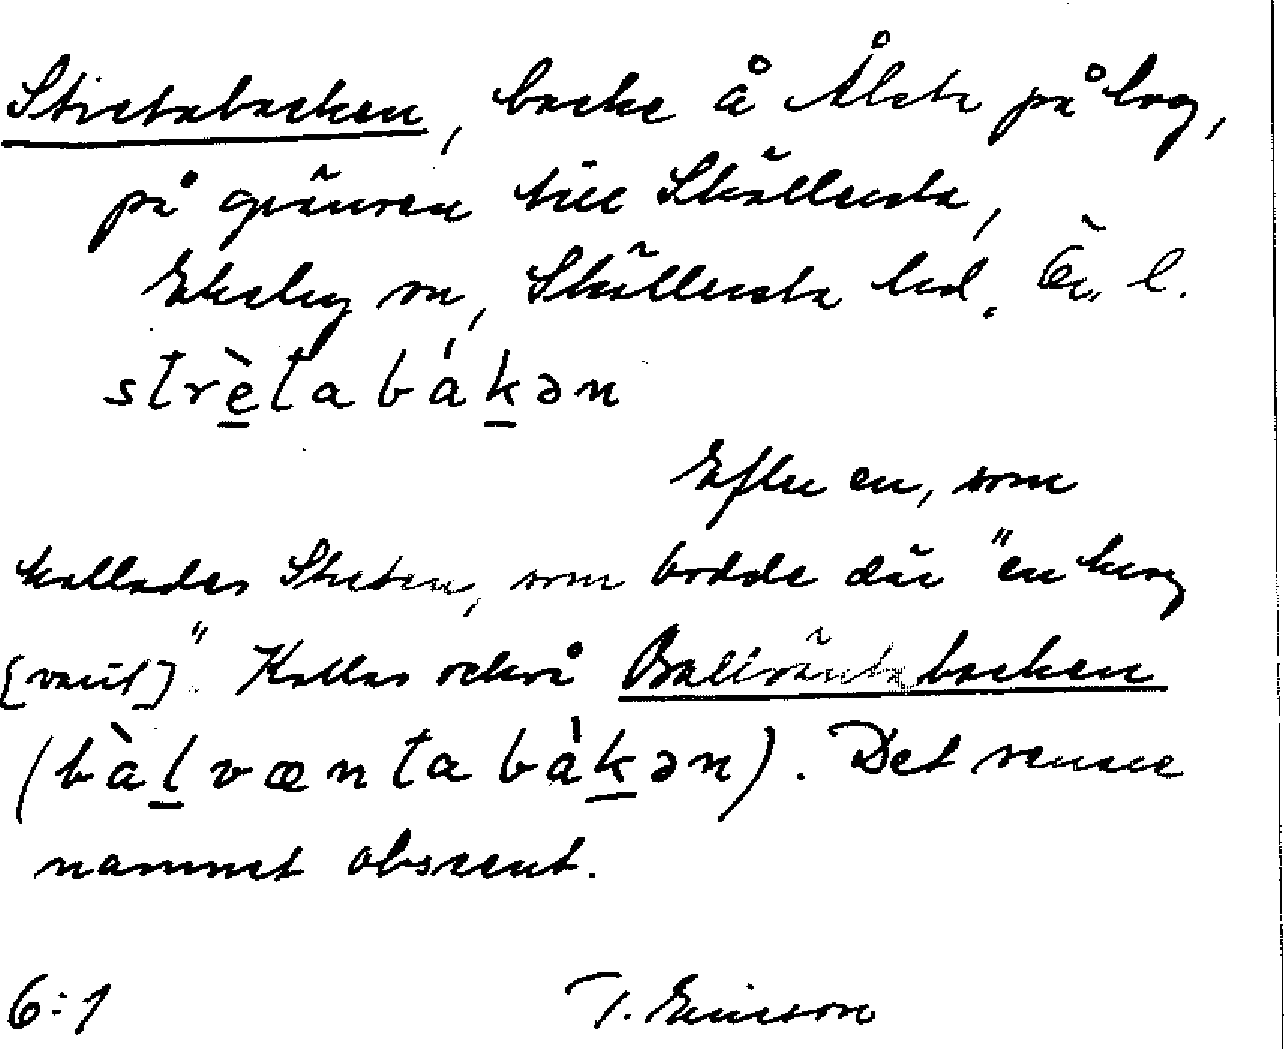 Stretabacken, backe å Ålsta på väg,
på gränsen till Sköllersta,
Ekeby sn, Sköllersta hd. Ör. l.
strètabákən
Efter en, som
kallades Streten, som bodde där "en krog
[varit]". Kallas också Ballväntabacken
(bàlvæntabàkən). Det senare
namnet obscent.
6:1 T. Ericsson